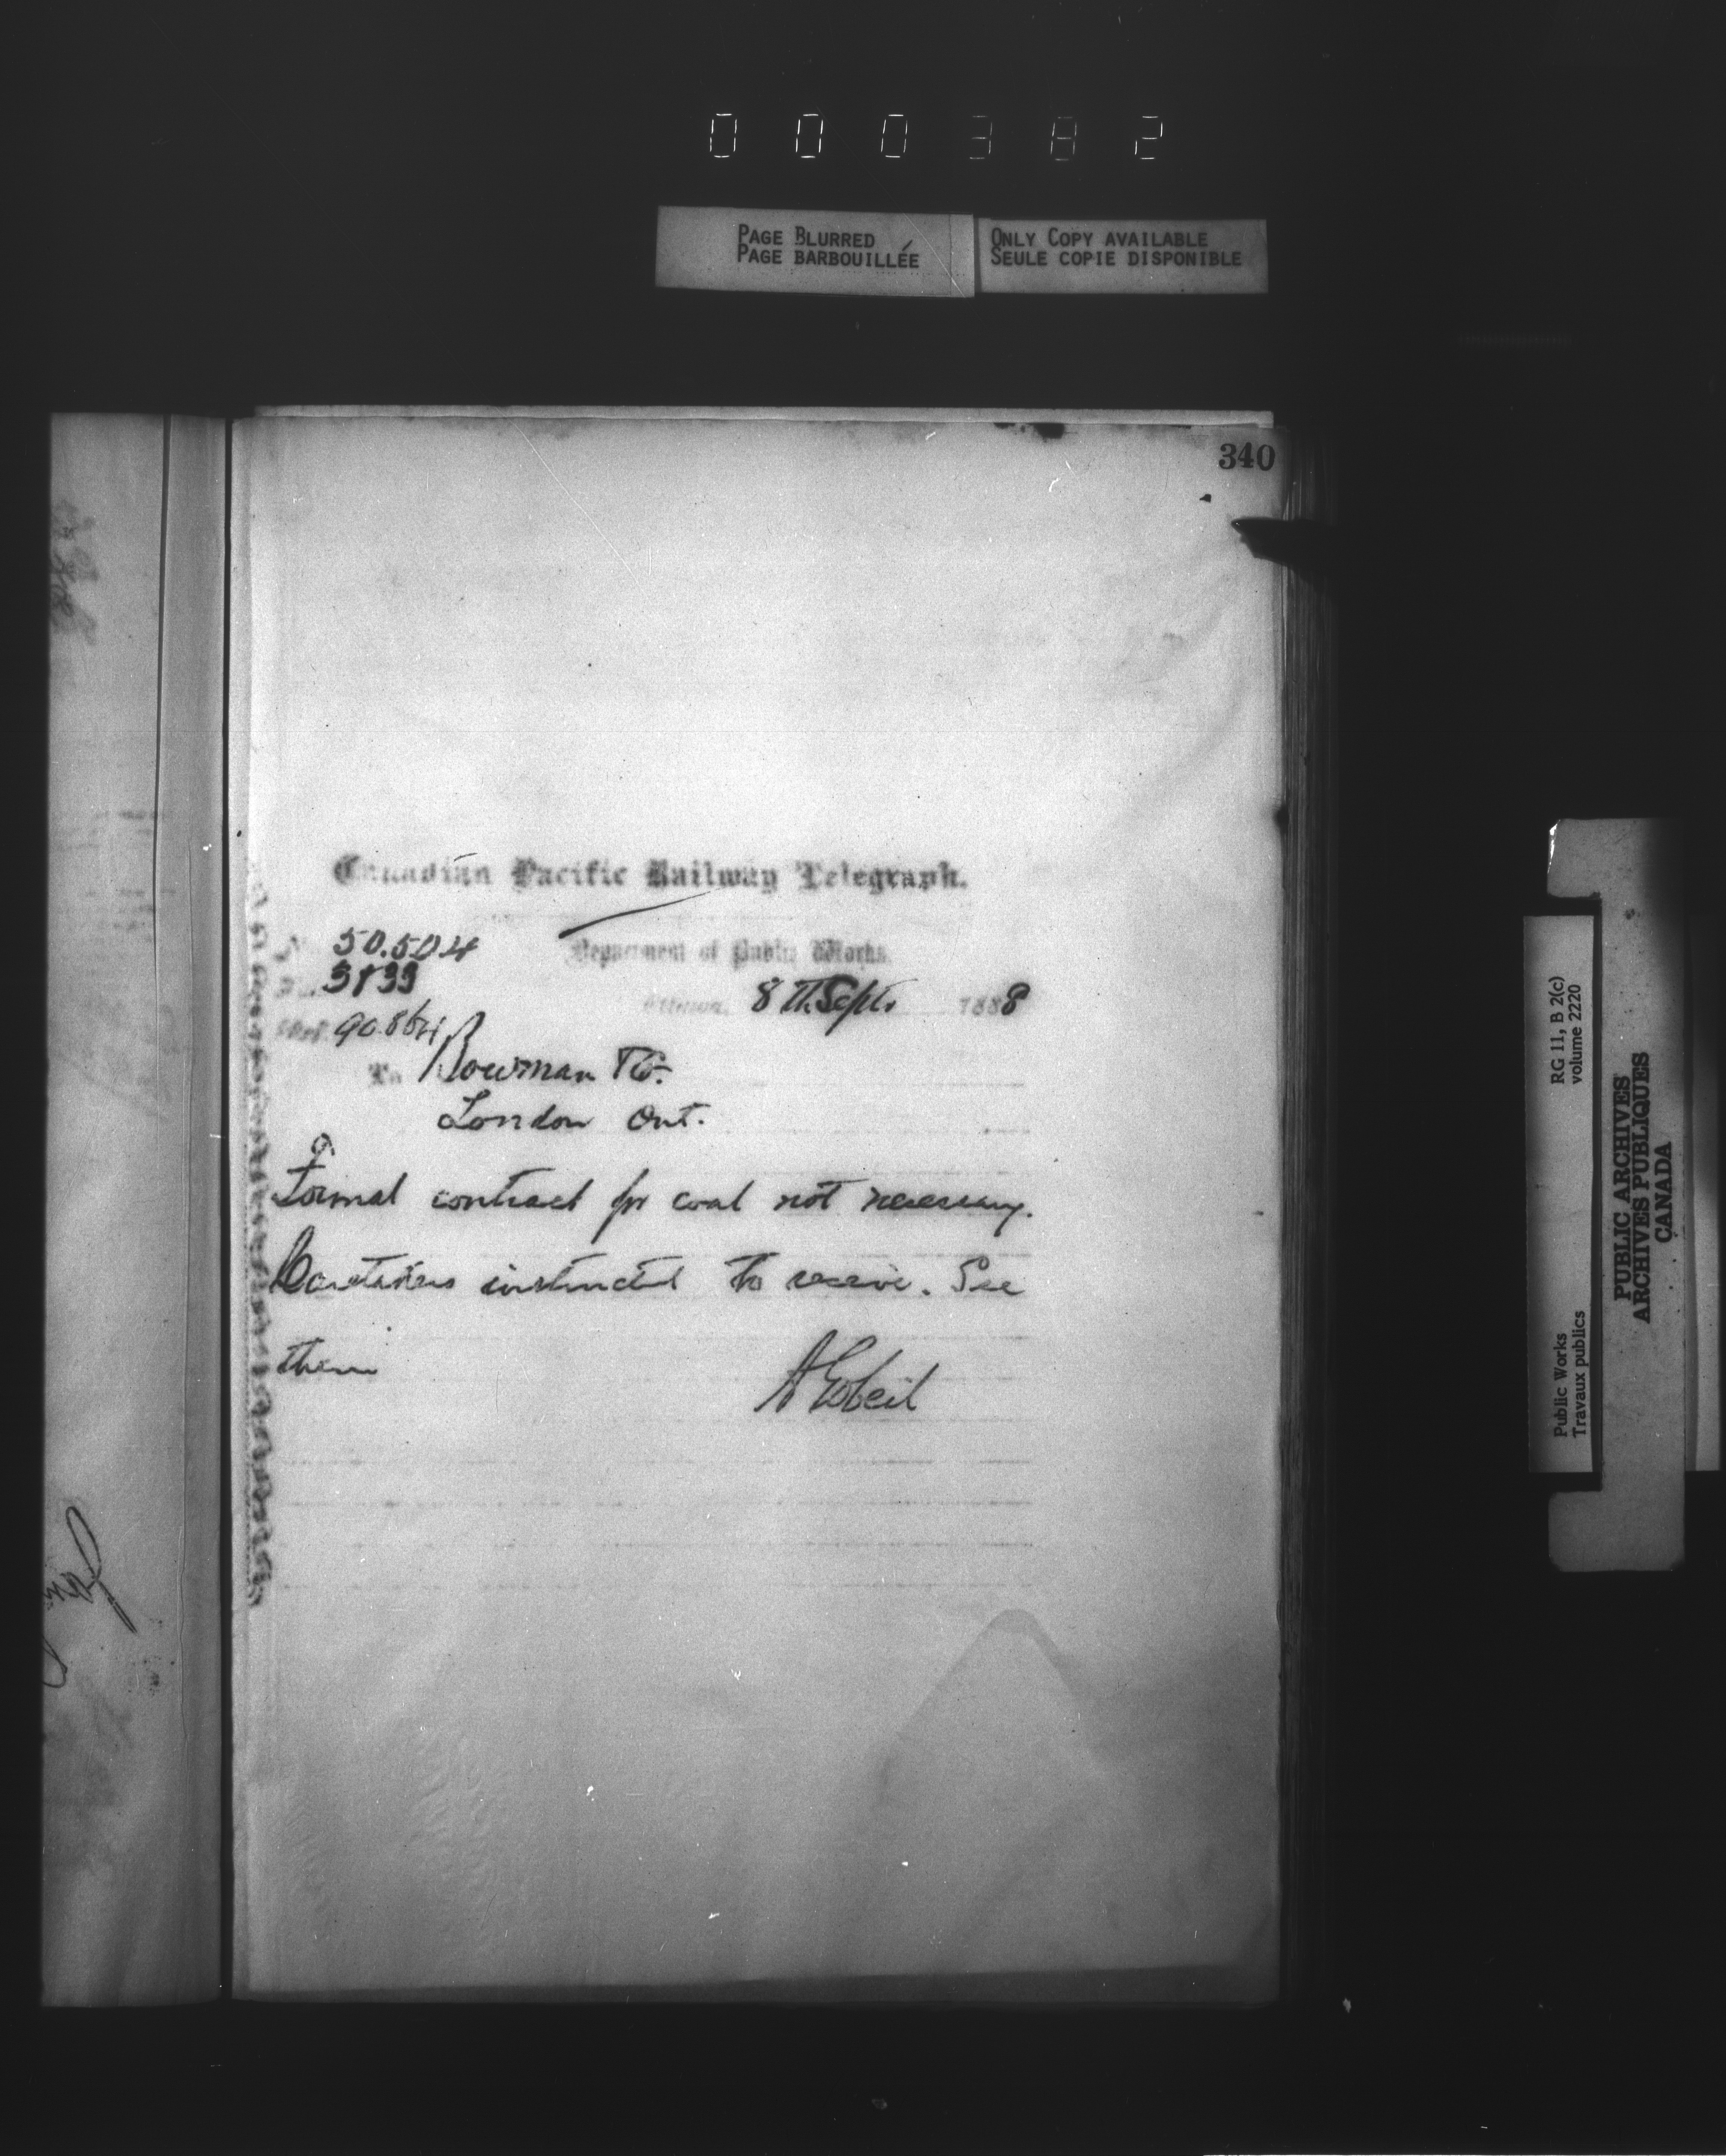 000382
PAGE BLURRED
PAGE BARBOUILLÉE
ONLY COPY AVAILABLE
SEULE COPIE DISPONIBLE
340
Canadian Pacific Railway Telegraph.
50.504
Department of Public Works.
Ottawa, 8 th Sept. 1888
Ref. 90864
To Bowman
London Ont.
Formal contract for coal not necessary.
Caretakers instructed to receive. See
them
A Gobeil
RG 11, B 2(c)
volume 2220
Public Works
Travaux publics
PUBLIC ARCHIVES
ARCHIVES PUBLIQUES
CANADA